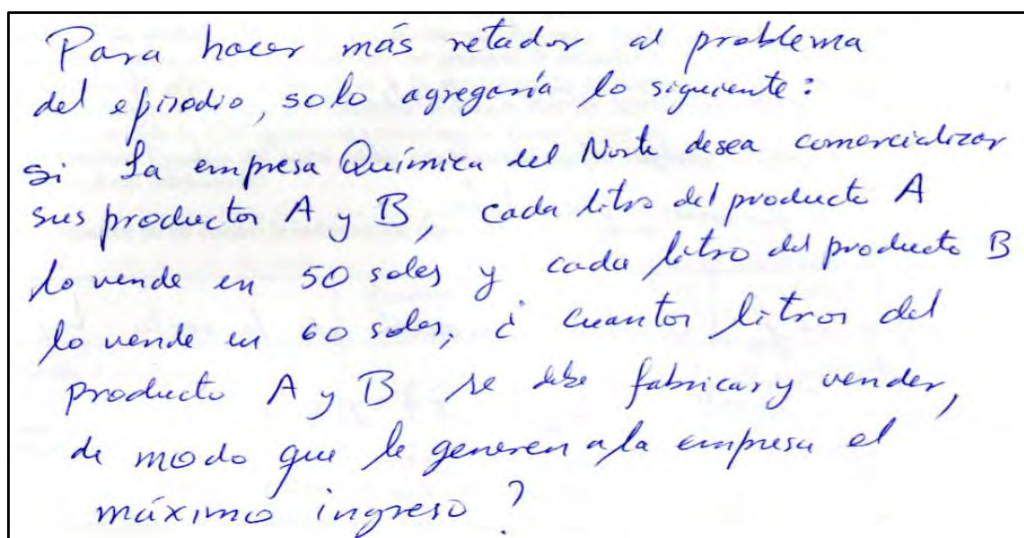 Para hacer más retador al problema
del episodio, solo agregaría lo siguiente:
si La empresa Química del Norte desea comercializar
sus productos A y B, cada litro del producto A
lo vende en 50 soles y cada litro del producto B
lo vende en 60 soles, ¿ cuantos litros del
producto A y B se debe fabricar y vender,
de modo que le generen a la empresa el
máximo ingreso?